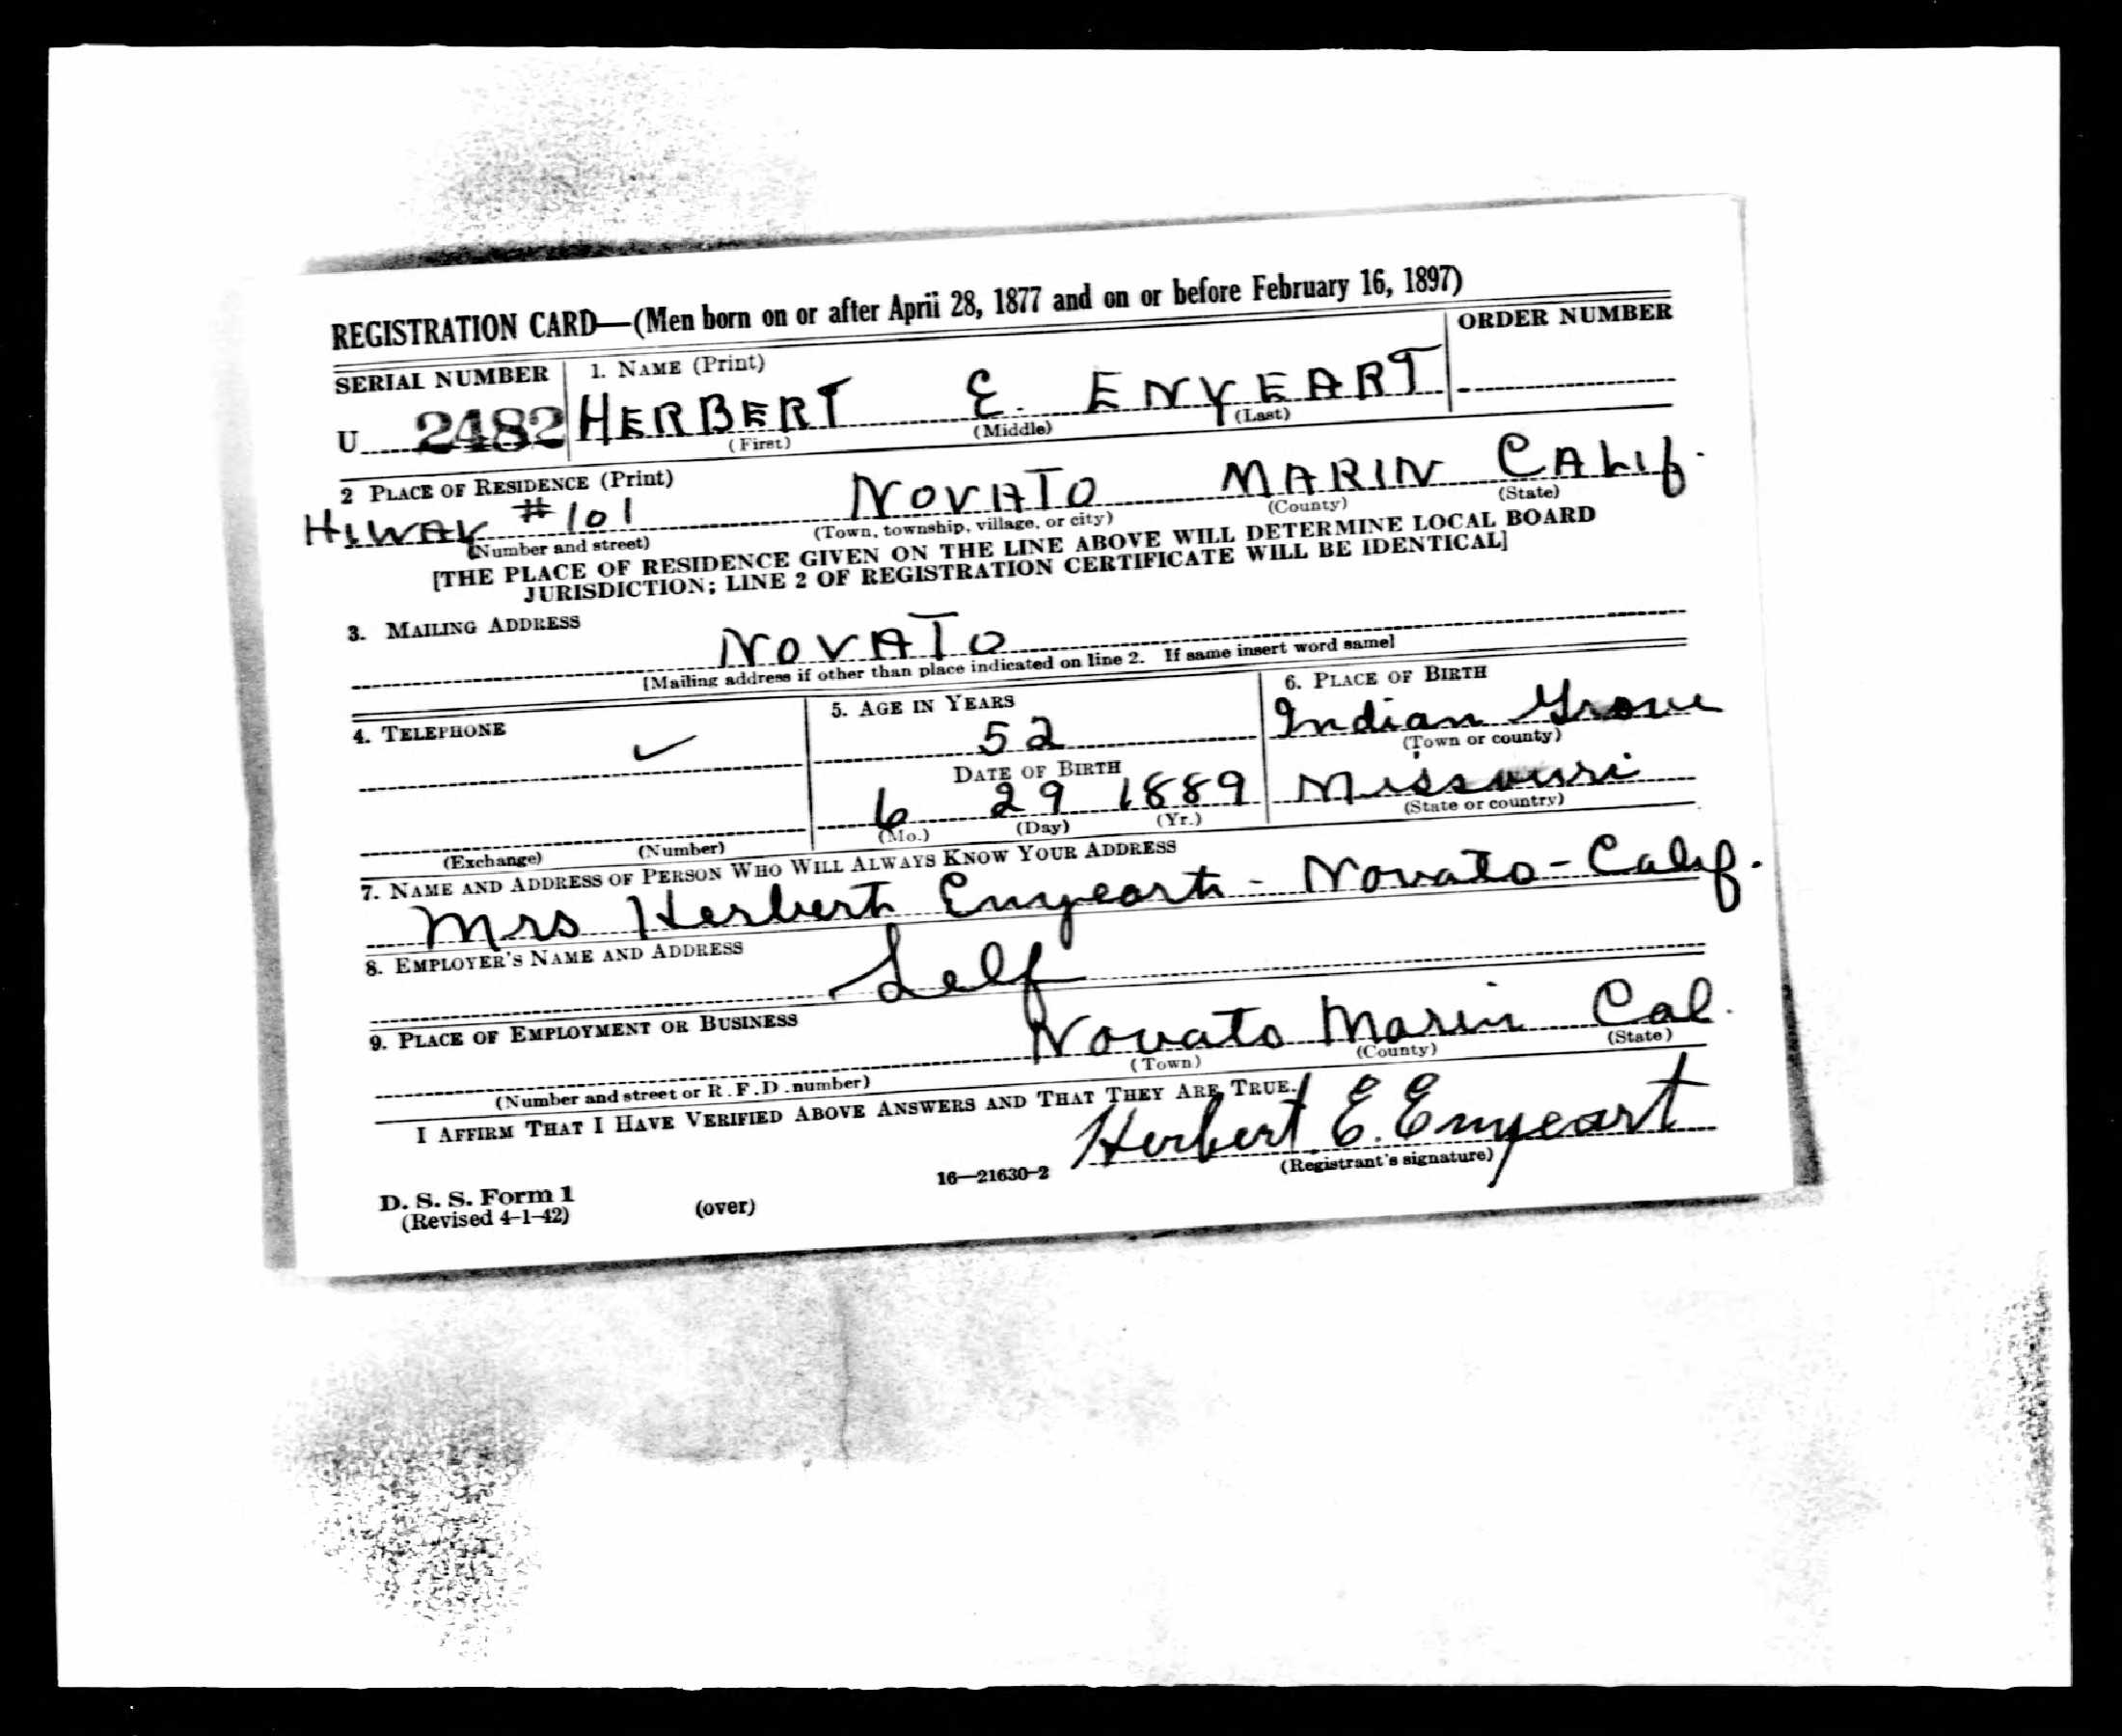 REGISTRATION CARD—(Men born on or after April 28, 1877 and on or before February 16, 1897)
SERIAL NUMBER 1. NAME (Print) ORDER NUMBER
U 2482 HERBERT E. ENYEART
(First) (Middle) (Last)
2 PLACE OF RESIDENCE (Print)
HIWAY #101 NOVATO MARIN CALIF.
(Number and street) (Town, township, village, or city) (County) (State)
[THE PLACE OF RESIDENCE GIVEN ON THE LINE ABOVE WILL DETERMINE LOCAL BOARD
JURISDICTION; LINE 2 OF REGISTRATION CERTIFICATE WILL BE IDENTICAL]
3. MAILING ADDRESS
NOVATO
[Mailing address if other than place indicated on line 2. If same insert word same]
4. TELEPHONE 5. AGE IN YEARS 6. PLACE OF BIRTH
✓ 52 Indian Grove
(Town or county)
DATE OF BIRTH
6 29 1889 Missouri
(Exchange) (Number) (Mo.) (Day) (Yr.) (State or country)
7. NAME AND ADDRESS OF PERSON WHO WILL ALWAYS KNOW YOUR ADDRESS
Mrs Herbert Enyeart - Novato - Calif.
8. EMPLOYER'S NAME AND ADDRESS
Self
9. PLACE OF EMPLOYMENT OR BUSINESS
Novato Marin Cal.
(Number and street or R.F.D. number) (Town) (County) (State)
I AFFIRM THAT I HAVE VERIFIED ABOVE ANSWERS AND THAT THEY ARE TRUE.
Herbert E. Enyeart
(Registrant's signature)
D. S. S. Form 1
(Revised 4-1-42) (over) 16—21630-2